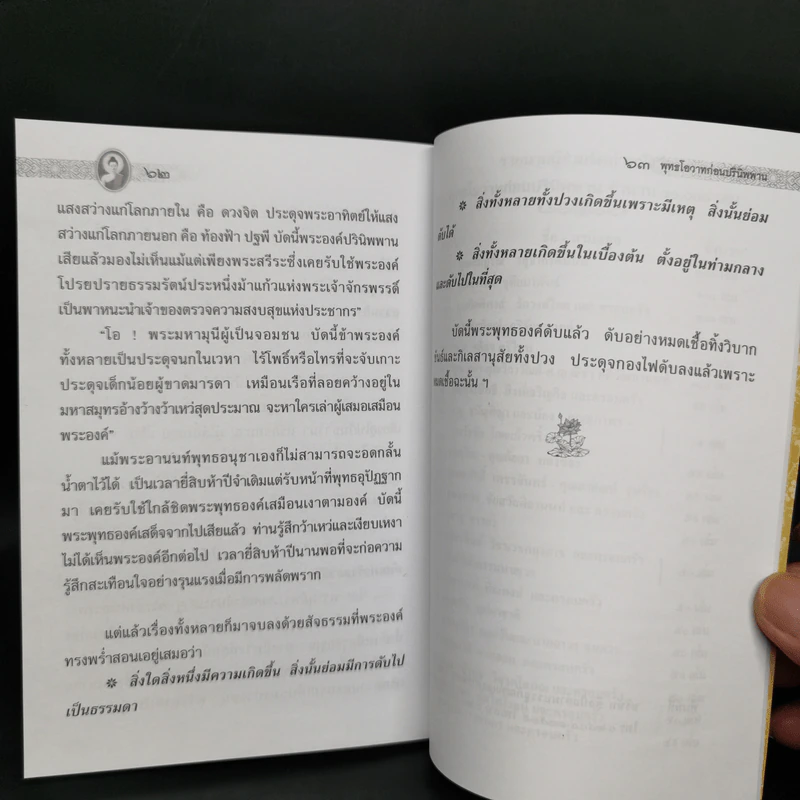 ๖๒
แสงสว่างแก่โลกภายใน คือ ดวงจิต ประดุจพระอาทิตย์ให้แสง
สว่างแก่โลกภายนอก คือ ท้องฟ้า ปฐพี บัดนี้พระองค์ปรินิพพาน
เสียแล้วมองไม่เห็นแม้แต่เพียงพระสรีระซึ่งเคยรับใช้พระองค์
โปรยปรายธรรมรัตน์ประหนึ่งม้าแก้วแห่งพระเจ้าจักรพรรดิ์
เป็นพาหนะนำเจ้าของตรวจความสงบสุขแห่งประชากร”
“โอ ! พระมหามุนีผู้เป็นจอมชน บัดนี้ข้าพระองค์
ทั้งหลายเป็นประดุจนกในเวหา ไร้โพธิ์หรือไทรที่จะจับเกาะ
ประดุจเด็กน้อยผู้ขาดมารดา เหมือนเรือที่ลอยคว้างอยู่ใน
มหาสมุทรอ้างว้างว้าเหว่สุดประมาณ จะหาใครเล่าผู้เสมอเสมือน
พระองค์”
แม้พระอานนท์พุทธอนุชาเองก็ไม่สามารถจะอดกลั้น
น้ำตาไว้ได้ เป็นเวลายี่สิบห้าปีจำเดิมแต่รับหน้าที่พุทธอุปัฏฐาก
มา เคยรับใช้ใกล้ชิดพระพุทธองค์เสมือนเงาตามองค์ บัดนี้
พระพุทธองค์เสด็จจากไปเสียแล้ว ท่านรู้สึกว้าเหว่และเงียบเหงา
ไม่ได้เห็นพระองค์อีกต่อไป เวลายี่สิบห้าปีนานพอที่จะก่อความ
รู้สึกสะเทือนใจอย่างรุนแรงเมื่อมีการพลัดพราก
แต่แล้วเรื่องทั้งหลายก็มาจบลงด้วยสัจธรรมที่พระองค์
ทรงพร่ำสอนเอยู่เสมอว่า
❊ สิ่งใดสิ่งหนึ่งมีความเกิดขึ้น สิ่งนั้นย่อมมีการดับไป
เป็นธรรมดา
๖๓ พุทธโอวาทก่อนปรินิพพาน
❊ สิ่งทั้งหลายทั้งปวงเกิดขึ้นเพราะมีเหตุ สิ่งนั้นย่อม
ดับได้
❊ สิ่งทั้งหลายเกิดขึ้นในเบื้องต้น ตั้งอยู่ในท่ามกลาง
และดับไปในที่สุด
บัดนี้พระพุทธองค์ดับแล้ว ดับอย่างหมดเชื้อทิ้งวิบาก
ขันธ์และกิเลสานุสัยทั้งปวง ประดุจกองไฟดับลงแล้วเพราะ
หมดเชื้อฉะนั้น ฯ